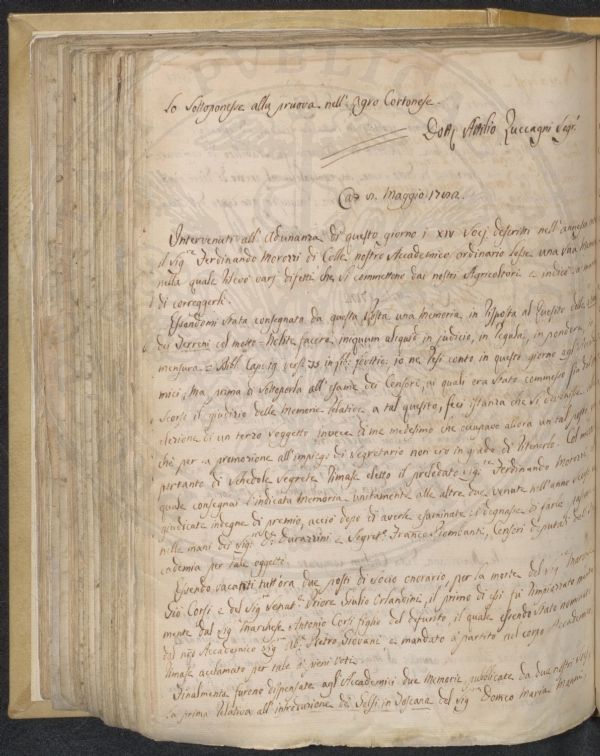 lo sottoponesse alla pruova nell' Agro Cortonese.
Dott. Attilio Zuccagni Segr.
Maggio 17
Intervenuti all' Adunanza di questo giorno i XIV Socj descritti nell' annessa
il Sig.re Ferdinando Morozzi di Colle nostro Accademico ordinario lesse una sua
nella quale rilevò varj difetti che si commettono dai nostri Agricoltori e indicò
di correggerli.
Essendomi stata consegnata da questa Posta una memoria, in risposta al Quesito
dei Terreni col motto = Nolite facere iniquum aliquid in judicio, in regula, in pondere, in
mensura = Bibl. Cap. 19. vers. 35 in io ne resi conto in questo giorno agl'
mici, ma prima di sottoporla all' esame dei Censori, ai quali era stato commesso fin dal
scorso il giudizio delle memorie relative a tal quesito, feci istanza che si devenisse
elezione di un terzo soggetto invece di me medesimo che occupavo allora un tal posto
che per la promozione all' impiego di Segretario non ero in grado di ritenerlo. Col mezzo
pertanto di schedole segrete rimase eletto il prelodato Sig.re Ferdinando Morozzi
quale consegnai l' indicata memoria unitamente alle altre due venute nell' anno
giudicate indegne di premio, acciò dopo di averle esaminate si degnasse di farle passare
nelle mani dei Sig.ri Durazzini e Segret.o Franco Piombanti, Censori deputati dall'
cademia per tale oggetto.
Essendo vacanti tutt'ora due posti di socio onorario, per la morte del Sig.re Marchese
Gio Corsi e del Sig.re Senat.re Priore Giulio Orlandini, il primo di essi fu rimpiazzato
mente dal Sig.re Marchese Antonio Corsi figlio del defunto, il quale essendo stato nominato
dal nro Accademico Sig.re Ab. Pietro Giovani e mandato a partito nel corpo Accademico
rimase acclamato per tale a pieni voti.
Finalmente furono dispensate agl' Accademici due Memorie pubblicate da due nostri
La prima relativa all' introduzione dei Gelsi in Toscana del Sig.re Domco Maria Manni,